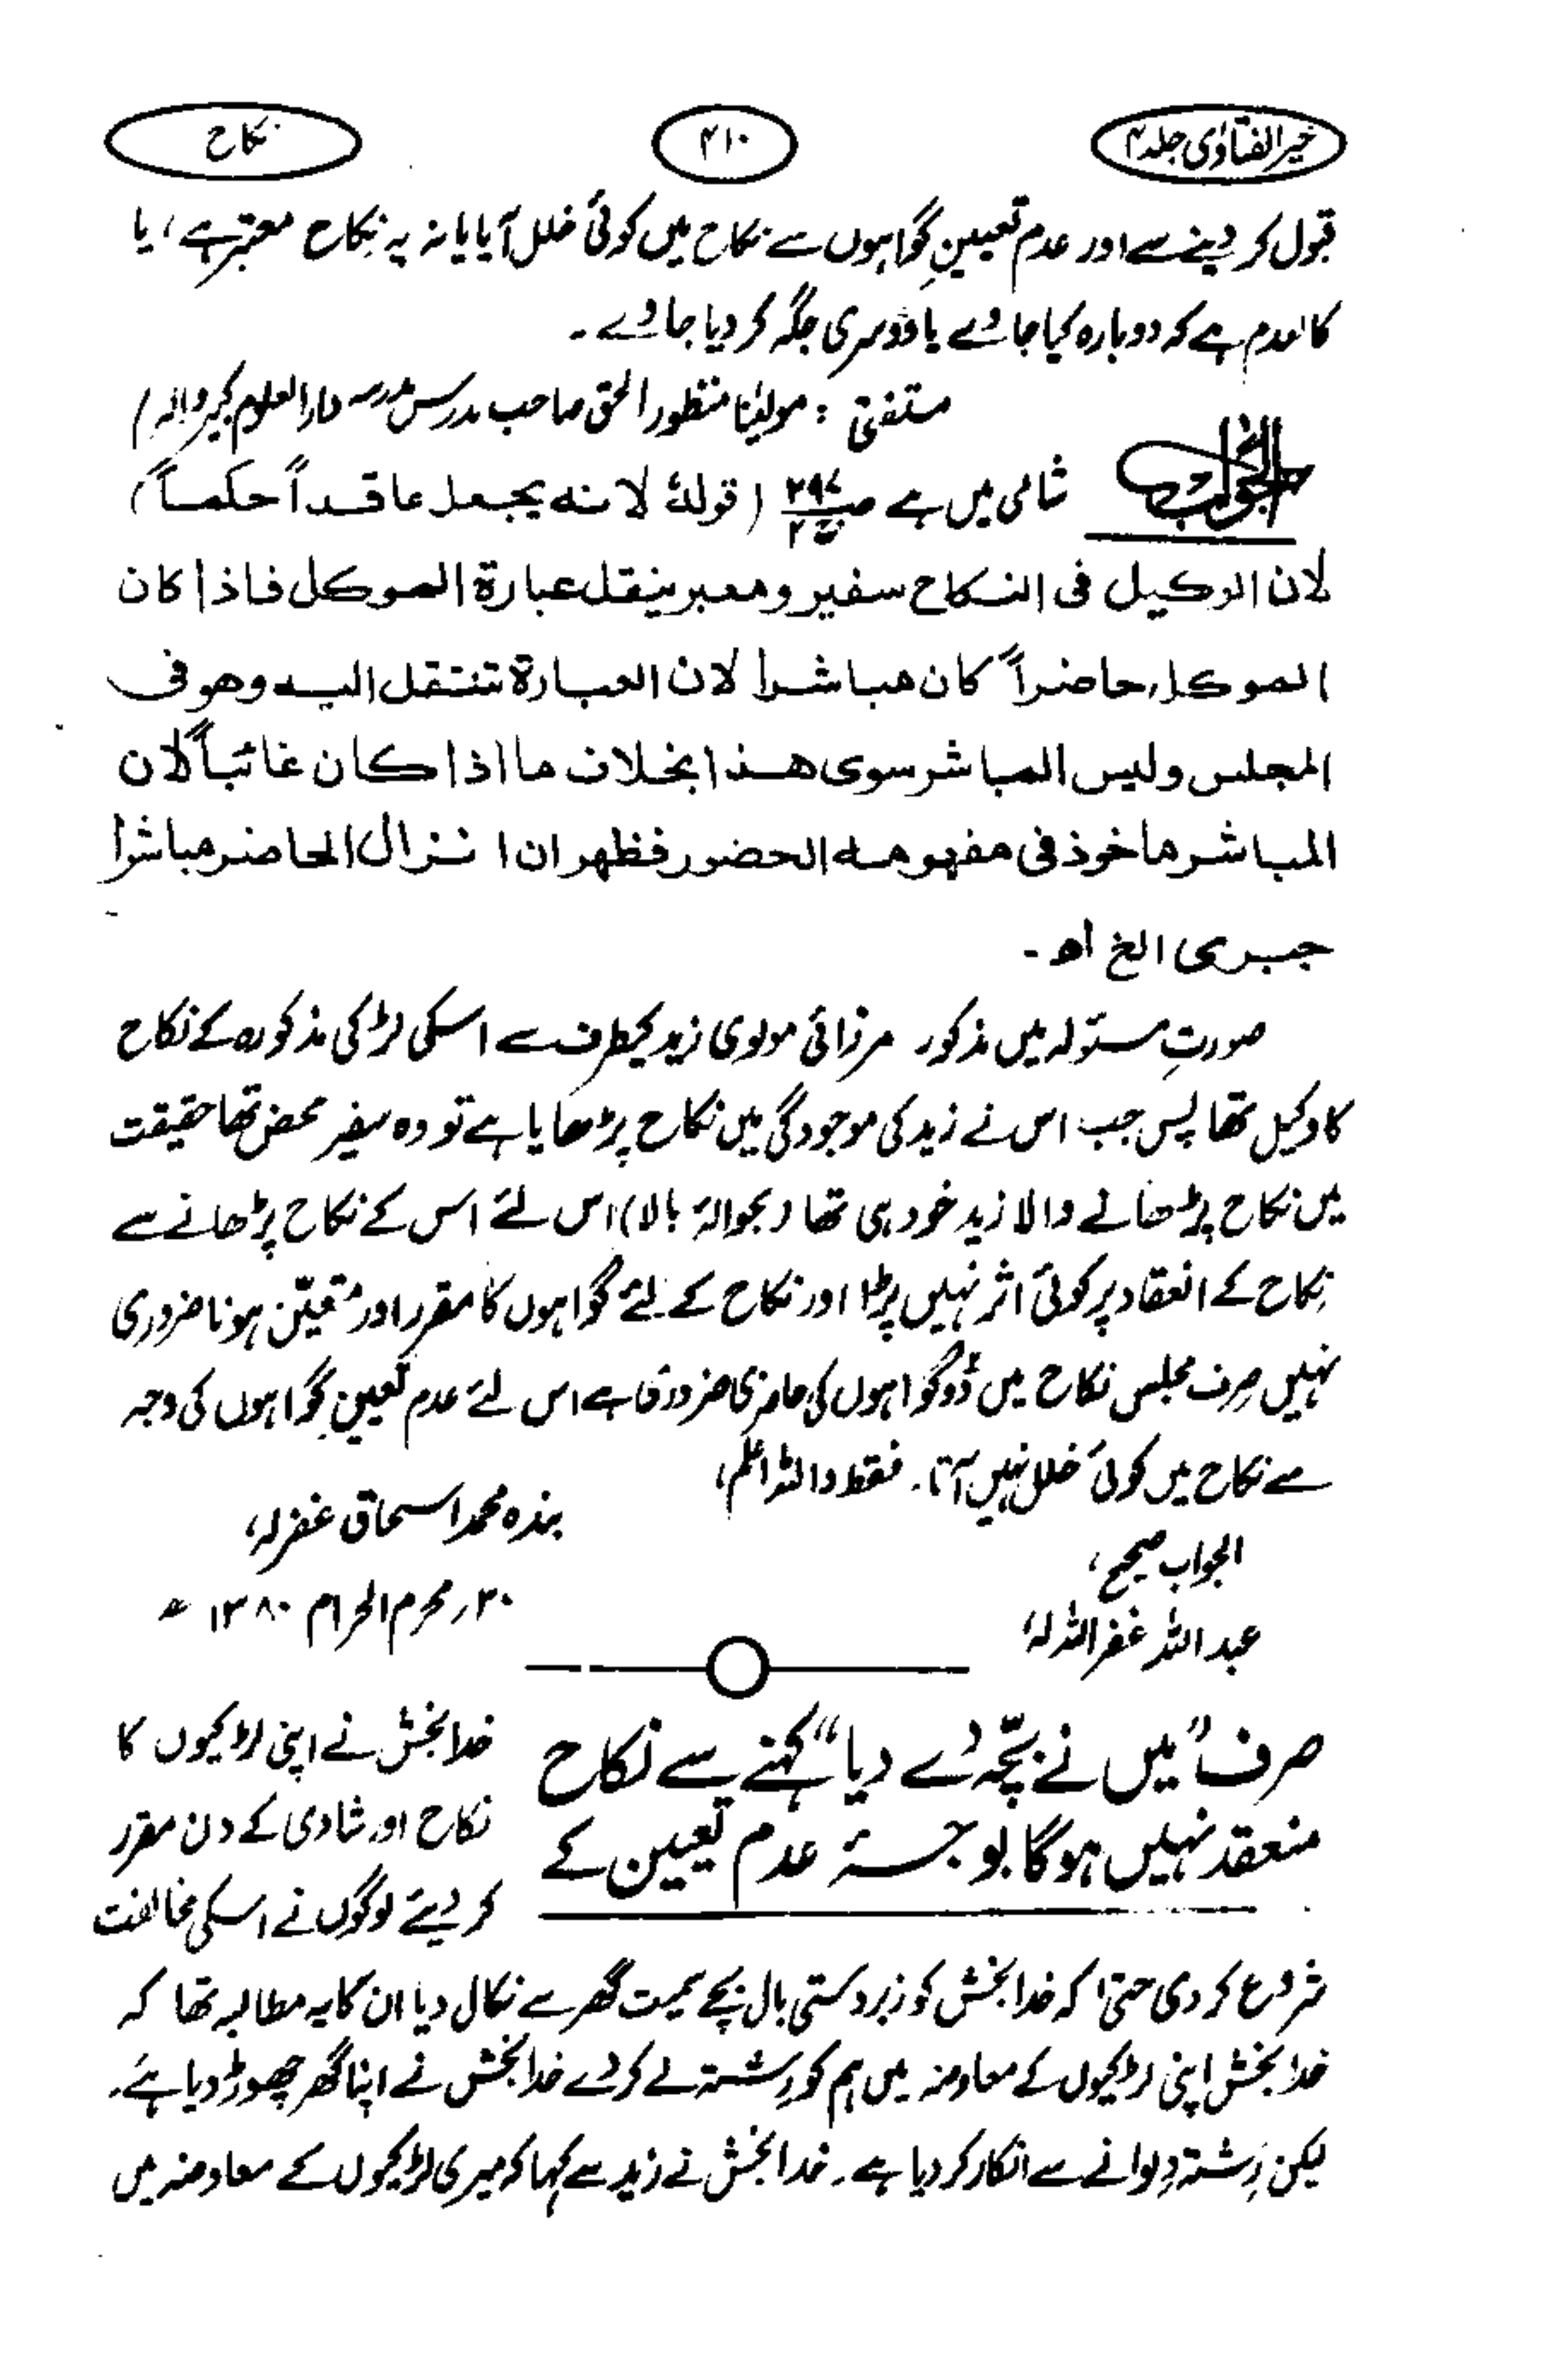 خیر الفتاوٰی جلد ۴
۴۱۰
نکاح
قبول کر دینے سے اور عدم تعیینِ گواہوں سے نکاح میں کوئی خلل آیا یا نہ یہ نکاح معتبر ہے، یا
کالعدم ہے کہ دوبارہ کیا جاوے یا دوسری جگہ کر دیا جاوے۔
مستفتی : مولینا منظور الحق صاحب مدرس مدرسہ دار العلوم کبیر والہ)
الجواب
شامی میں ہے ص۲۹۷ ج۲ (قولہٗ لانہ یجعل عاقداً حکماً)
لان الوکیل فی النکاح سفیر ومعبر ینقل عبارۃ الموکل فاذا کان
الموکل حاضراً کان مباشرا لان العبارۃ تنتقل الیہ وھو فی
المجلس ولیس المباشر سوی ھذا بخلاف ما اذا کان غائباً لان
المباشر ماخوذ فی مفہومہ الحضور فظھر ان انزال الحاضر مباشرا
جبری الخ اھ۔
صورتِ مسئولہ میں مذکور مرزائی مولوی زید کیطرف سے اسکی لڑکی مذکورہ کے نکاح
کا وکیل تھا پس جب اس نے زید کی موجودگی میں نکاح پڑھایا ہے تو وہ سفیر محض تھا حقیقت
میں نکاح پڑھانے والا زید خود ہی تھا (بحوالۂ بالا) اس لئے اس کے نکاح پڑھانے سے
نکاح کے انعقاد پر کوئی اثر نہیں پڑا اور نکاح کے لئے گواہوں کا مقرر اور متعیّن ہونا ضروری
نہیں صرف مجلس نکاح میں دو گواہوں کی حاضری ضروری ہے اس لئے عدم تعیینِ گواہوں کی وجہ
سے نکاح میں کوئی خلل نہیں آتا۔ فقط واللہ اعلم،
بندہ محمد اسحاق غفرلہ،
الجواب صحیح،
۳۰؍ محرم الحرام ۱۳۸۰ ھ
عبد اللہ غفر اللہ لہٗ
صرف "میں نے بچّہ دے دیا" کہنے سے نکاح
منعقد نہیں ہوگا بوجہ عدم تعیین کے
خدا بخش نے اپنی لڑکیوں کا
نکاح اور شادی کے دن مقرر
کر دیئے لوگوں نے اسکی مخالفت
شروع کر دی حتیٰ کہ خدا بخش کو زبردستی بال بچے سمیت گھر سے نکال دیا ان کا یہ مطالبہ تھا کہ
خدا بخش اپنی لڑکیوں کے معاوضہ میں ہم کو رشتہ لے کر دے خدا بخش نے اپنا گھر چھوڑ دیا ہے،
لیکن رشتہ دلوانے سے انکار کر دیا ہے۔ خدا بخش نے زید سے کہا کہ میری لڑکیوں کے معاوضہ میں